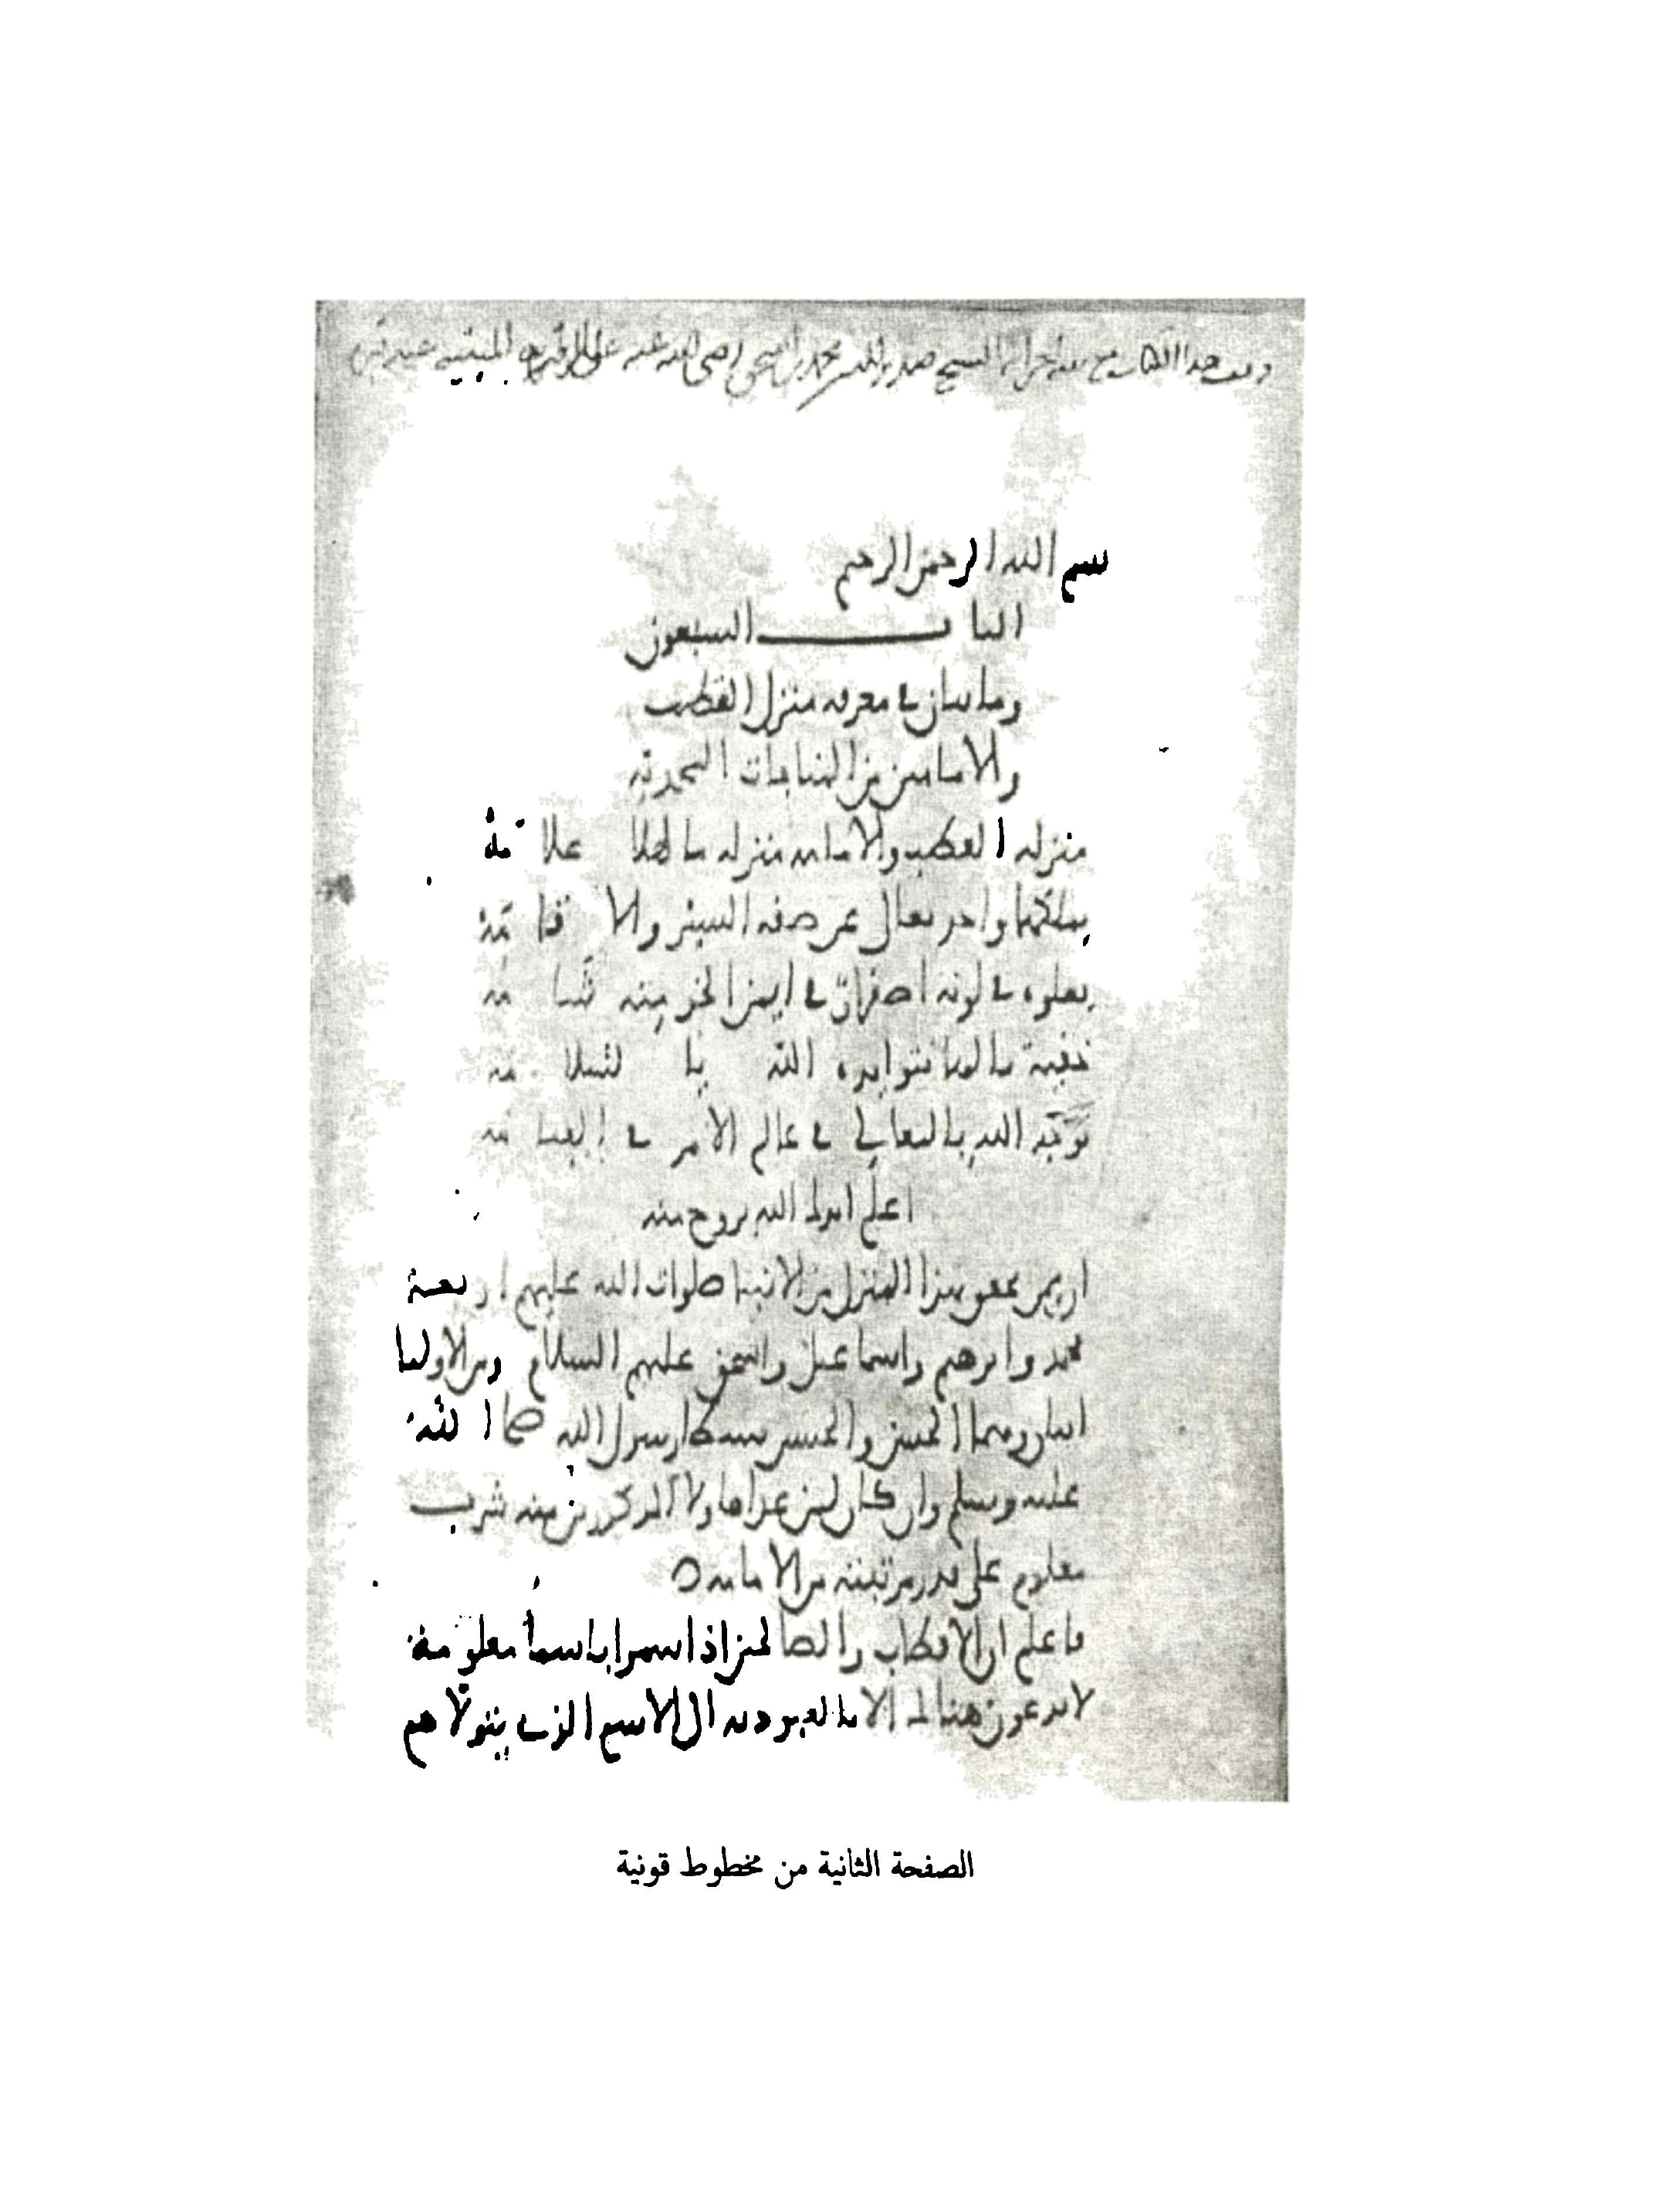 وقف هذا الكتاب مع بقية اجزائه الشيخ صدر الدين محمد بن اسحق رضى الله عنه على عند قبره
بسم الله الرحمن الرحيم
الباب السبعون
وماىتان فى معرفة منزل القطب
والامامين من المناجات المحمدية
منزلة القطب والامامة منزلة ما لها علامة
يملكها واحد تعالى عن صفة السير والاقامة
يعلوه فى لونه اصفرار فى ايمن الخد منه شامة
خفية ما لها نتو ايده الله بالسلامة
توجه الله بالتعالى فى عالم الامر فى القيامة
اعلم ايدك الله بروح منه
ان ممن تحقق بهذا المنزل من الانبيا صلوات الله عليهم اربعة
محمد وابرهيم واسماعيل واسحق عليهم السلام ومن الاوليا
اثنان وهما الحسن والحسين سبطا رسول الله صلى الله
عليه وسلم وان كان لمن عدا هاولا المذكورين منه شرب
معلوم على قدر مرتبته من الامامة
فاعلم ان الاقطاب والصالحين اذا سموا باسما معلومة
لا يدعون هنالك الا بالعبودية الى الاسم الذى يتولاهم
الصفحة الثانية من مخطوط قونية